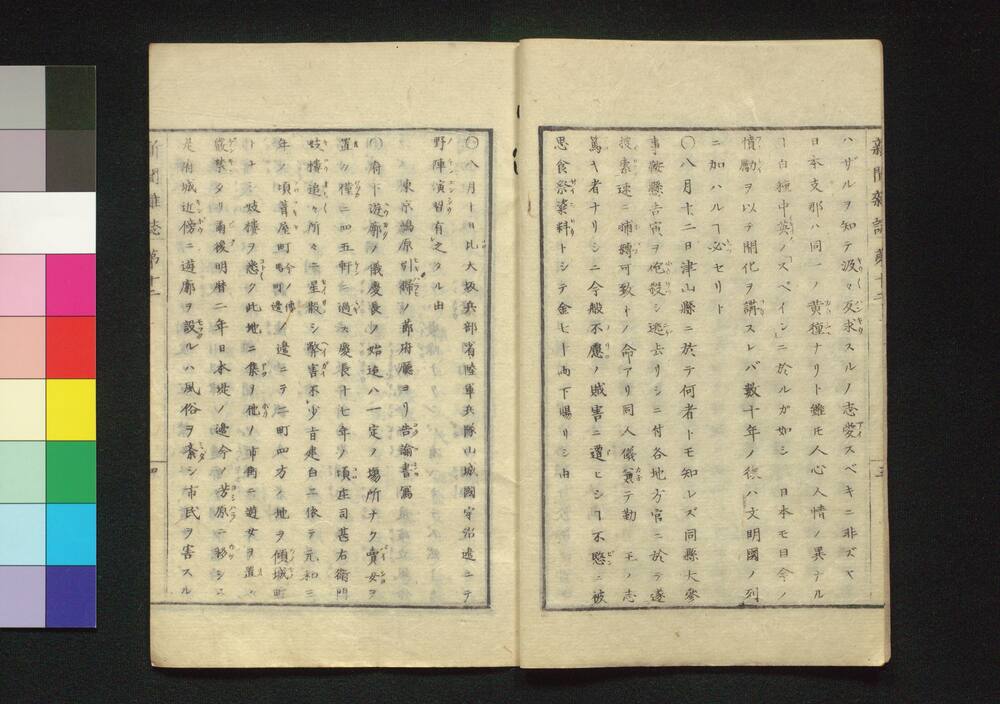 新聞雑誌 第十二 三
ハザルヲ知テ汲々反求スルノ志愛スベキニ非ズヤ
日本支那ハ同一ノ黄種ナリト雖モ人心人情ノ異ナル
ヿ白種中英ノ「スペイン」ニ於ルガ如シ 日本モ目今ノ
憤勵ヲ以テ開化ヲ講スレバ數十年ノ後ハ文明國ノ列
ニ加ハルヿ必セリト
〇八月十二日津山縣ニ於テ何者トモ知レズ同縣大參
事鞍懸吉寅ヲ砲殺シ逃去リシニ付各地方官ニ於テ遂
捜索速ニ捕縛可致トノ命アリ同人儀兼テ勤 王ノ志
篤キ者ナリシニ今般不慮ノ賊害ニ遭ヒシヿ不愍ニ被
思食祭粢料トシテ金七十両下賜リシ由
〇八月十日比大坂兵部省陸軍兵隊山城國宇治邊ニテ
野陣演習有之タル由
東京嶋原引拂ノ節府廳ヨリ告諭書寫
〇府下遊廓ノ儀慶長ノ始迠ハ一定ノ場所ナク賣女ヲ
置ク僅ニ四五軒ニ過ス慶長十七年ノ頃庄司甚右衛門
妓樓追々所々ニ星散シ弊害不少旨建白ニ依テ元和三
年ノ頃葺屋町ノ邊ニテ二町四方ノ地ヲ傾城町
トナシ妓樓ヲ悉ク此地ニ集ヲ他ノ市街ニ遊女ヲ置ヿ
嚴禁タリ爾後明暦二年日本堤ノ邊今ノ芳原ニ移シヿ
是府城近傍ニ遊廓ヲ設ルハ風俗ヲ紊シ市民ヲ害スル
新聞雑誌 第十二 四